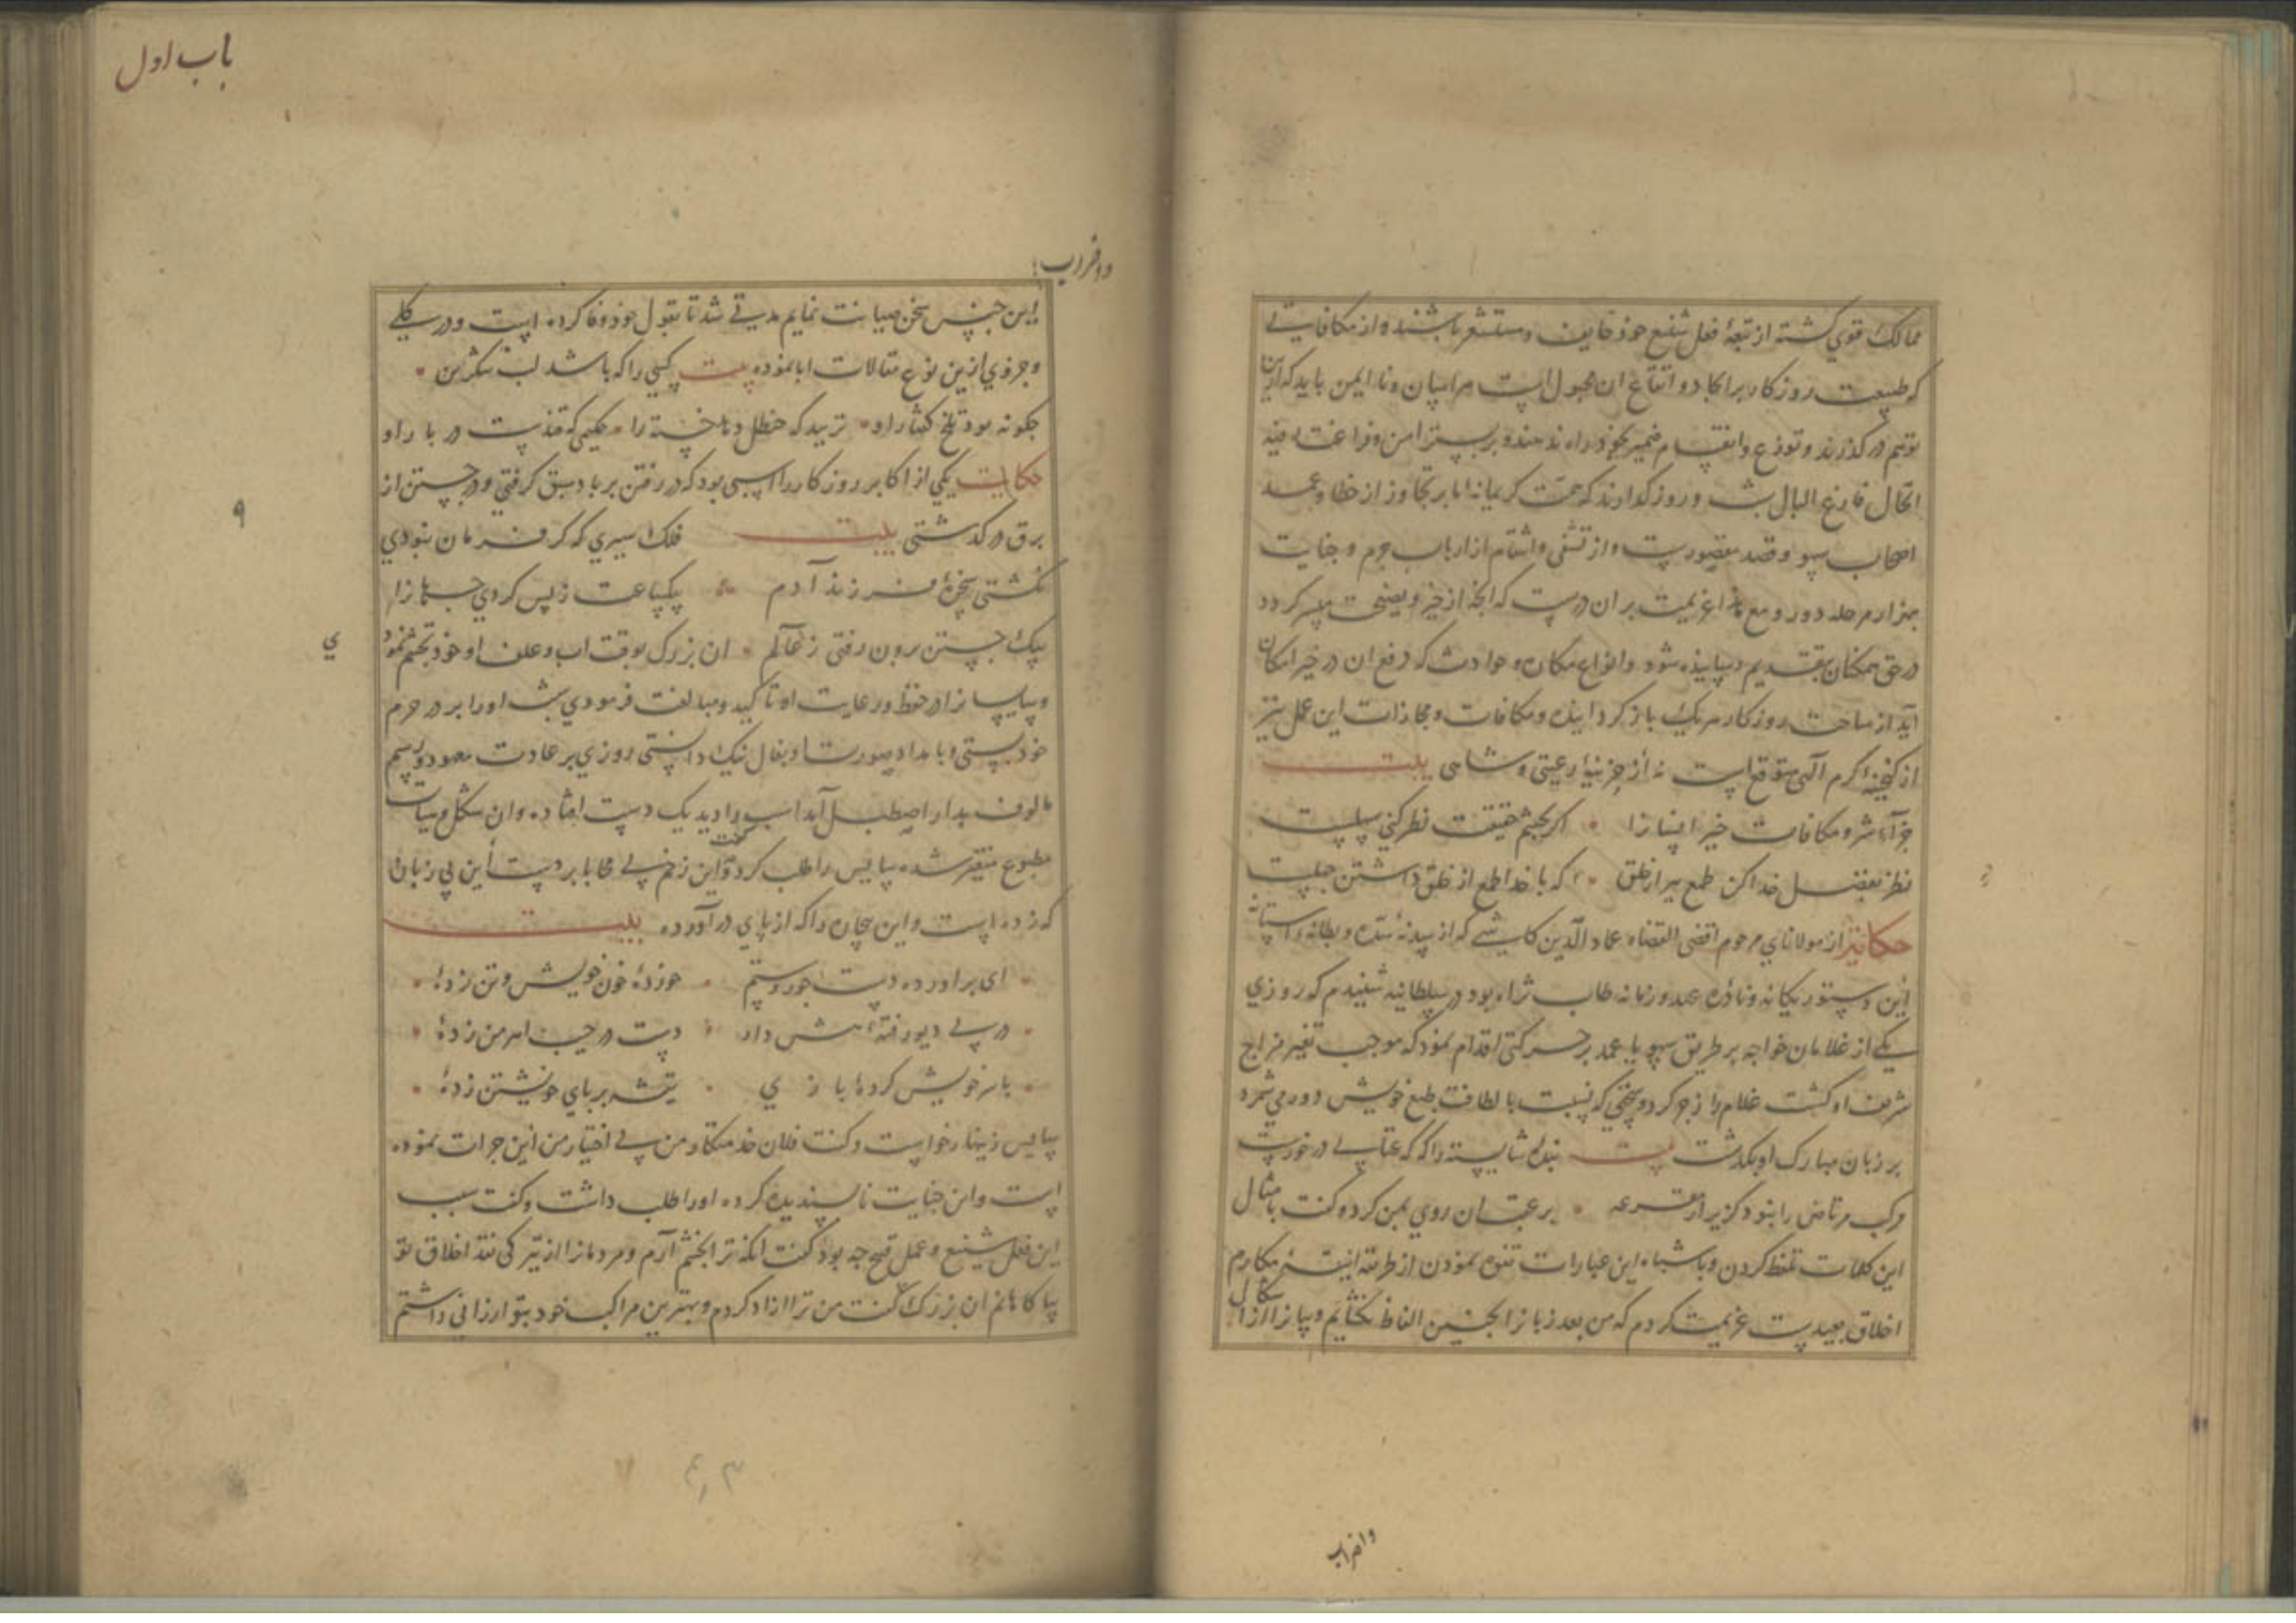 ممالک قوی گشته از تبعهٔ فعل شنیع خود خایف و مستشعر باشند و از مکافاتی
که طبیعت روزکار بر ایجاد و ان مجبول است هراسان و نا ایمن باید که ازین
توهم درکذرند و توزع و انقسام ضمیر بخود راه ندهند و بر بستر امن و فراغت رفیه
الحال فارغ البال شب و روز کذارند که همت کریمانه ما بر تجاوز از خطا و عمد
اصحاب سهو و قصد مقصورست و از تشفی و انتقام از ارباب جرم و جنایت
بهزار مرحله دور و مع هذا عزیمت بران درست که انچه از خیر و نصیحت میسر کردد
در حق همکنان بتقدیم رسانیده شود و انواع مکاره و حوادث که دفع ان در حیز امکان
آید از ساحت روزکار هریک باز کردانیده و مکافات و مجازات این عمل نیز
از کنجینه کرم الهی متوقع است نه از خزینهٔ رعیتی و شاهی بیت
جزآء شر و مکافات خیر انسانرا اکر بچشم حقیقت نظر کنی سهلست
نظر بفضل خدا کن طمع ببر از خلق که با خدا طمع از خلق داشتن جهلست
حکایت از مولانای مرحوم اقضی القضاه عماد الدین کاشی که از سدنهٔ سده و بطانه استانه
این دستور یکانه و نادره عهد و زمانه طاب ثراه بود در سلطانیه شنیدم که روزی
یکی از غلامان خواجه بر طریق سهو یا عمد بر حرکتی اقدام نمود که موجب تغیر مزاج
شریف او کشت غلام را زجر کرد و سخنی که نسبت با لطافت طبع خویش دور می شمرد
بر زبان مبارک او بکذشت بیت بنده شایسته را که که عتابی در خورست
مرکب مرتاض را نبود کزیر از قرعه بر عقب ان روی بمن کرد و کفت بامثال
این کلمات تلفظ کردن و باشباه این عبارات تفوه نمودن از طریقه مکارم
اخلاق بعیدست عزیمت کردم که من بعد زبانرا بجنس این الفاظ نکشایم و بیانرا از اشکال
واضراب
باب اول
واضراب
این جنس سخن صیانت نمایم مدتی شد تا بقول خود وفا کرده است و در کلی
و جزوی ازین نوع مقالات ابا نموده بیت کسی را که باشد لب شکرین
چکونه بود تلخ کفتار او نزیبد که حنظل دهد خسته را حکیمی که قندست در بار او
حکایت یکی از اکابر روزکار را اسبی بود که در رفتن بر باد سبق کرفتی و در جستن از
برق درکذشتی بیت فلک سیری که کر فرمان نبودی
نکشتی سخرهٔ فرزند آدم بیکساعت ز پس کردی جهانرا
بیک جستن برون رفتی ز عالم ان بزرک بوقت اب و علف او خود تجشم نمودی
و سایسانرا در حفظ و رعایت او تاکید و مبالغت فرمودی شب اورا بر در حرم
خود بستی و بامداد بصورت او بفال نیک دانستی روزی بر عادت معهود و رسم
مالوف بدار اصطبل آمد اسب را دید یک دست افتاده و ان شکل و هیات
مطبوع متغیر شده سایس را طلب کرد و کفت این زخم بی محابا بر دست این بی زبان
که زده است و این بیچاره را که از پای درآورده بیت
ای براورده دست جور و ستم خوردهٔ خون خویش و تن زدهٔ
در پی دیو رفتهٔ هش دار دست در جیب اهرمن زدهٔ
با سر خویش کردهٔ بازی تیشه بر پای خویشتن زدهٔ
سایس زینهار خواست و کفت فلان خدمتکار من بی اختیار من این جرات نموده
است و این جنایت ناپسندیده کرده اورا طلب داشت و کفت سبب
این فعل شنیع و عمل قبیح چه بود کفت انکه ترا بخشم آرم و مردمانرا از تیرکی نقد اخلاق تو
بیاکاهانم ان بزرک کفت من ترا ازاد کردم و بهترین مراکب خود بتو ارزانی داشتم
۹
ی